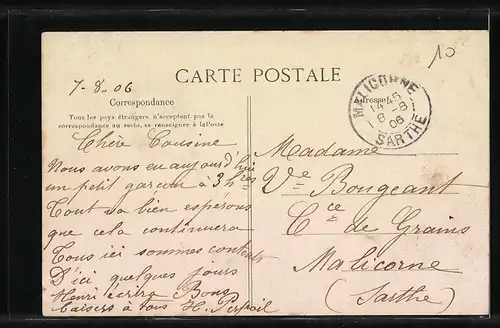 10
7-8-06
CARTE POSTALE
Correspondance
Adresse
Tous les pays étrangers n'acceptent pas la
correspondance au recto, se renseigner à la Poste
MALICORNE
14 45
8 -8
06
SARTHE
Chère Cousine
Nous avons eu aujourd'hui
un petit garcon à 3 hres
Tout va bien esperons
que cela continuera
Tous ici sommes contents
D'ici quelques jours
Henri écrira Bons
baisers à tous H.
Madame
Vve Bougeant
Cce de Grains
Malicorne
(Sarthe)